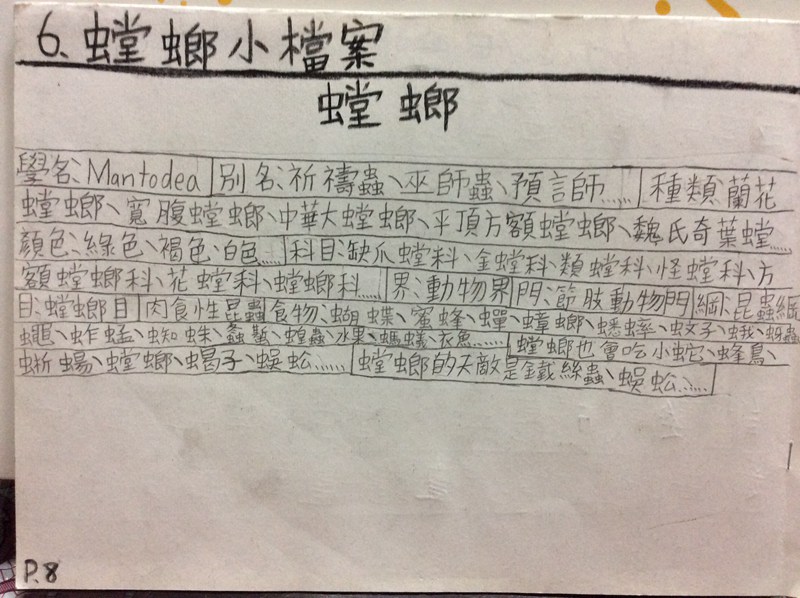 6、螳螂小檔案
螳螂
學名:Mantodea 別名:祈禱蟲、巫師蟲、預言師…… 種類蘭花
螳螂、寬腹螳螂、中華大螳螂、平頂方額螳螂、魏氏奇葉螳……
顏色:綠色、褐色、白色…… 科目:缺爪螳科、金螳科、類螳科、怪螳科、方
額螳螂科、花螳科、螳螂科…… 界:動物界 門:節肢動物門 綱:昆蟲綱
目:螳螂目 肉食性昆蟲食物:蝴蝶、蜜蜂、蟬、蟑螂、蟋蟀、蚊子、蛾、蚜蟲
蠅、蚱蜢、蜘蛛、螽蟴、蝗蟲、水果、螞蟻、衣魚…… 螳螂也會吃小蛇、蜂鳥、
蜥蜴、螳螂、蝎子、蜈蚣…… 螳螂的天敵是鐵絲蟲、蜈蚣……
P.8